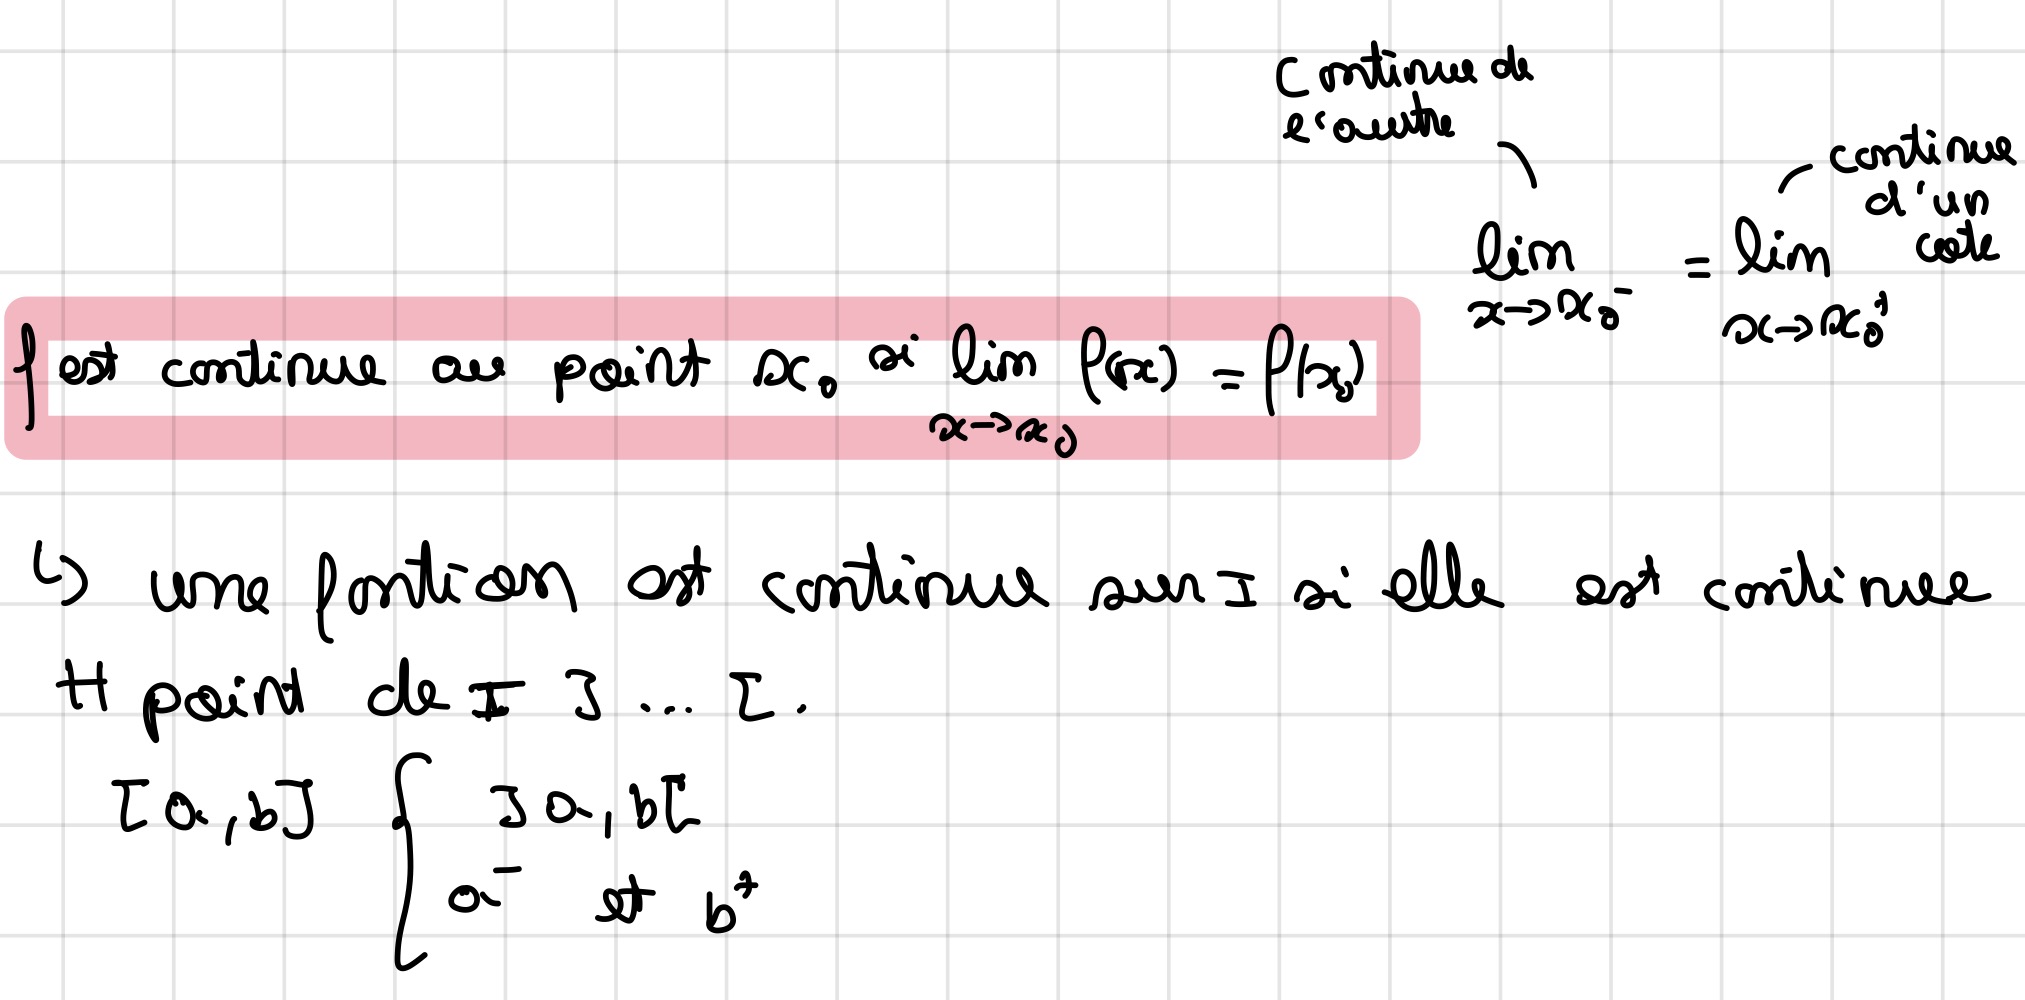 Continue de
l'autre
continue
d'un
cote
lim = lim
x→x₀⁻ x→x₀⁺
f est continue au point x₀ si lim f(x) = f(x₀)
x→x₀
↳ une fontion est continue sur I si elle est continue
∀ point de I ]...[.
[a,b] { ]a,b[
a⁻ et b⁺